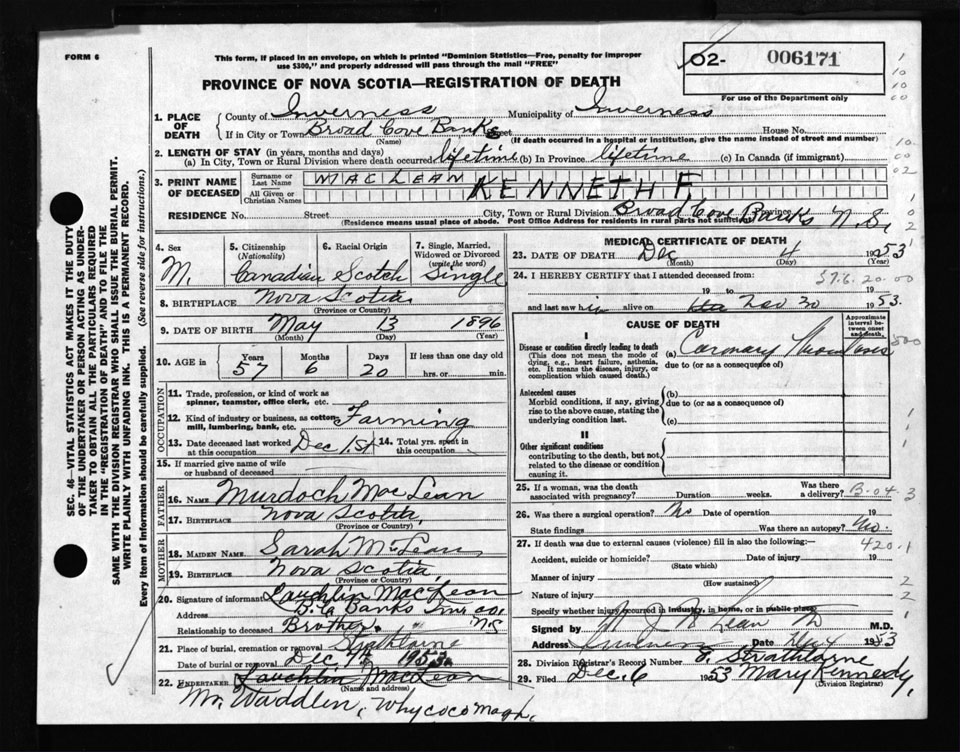 FORM 6
This form, if placed in an envelope, on which is printed "Dominion Statistics—Free, penalty for improper
use $300," and properly addressed will pass through the mail "FREE"
02- 006171
For use of the Department only
PROVINCE OF NOVA SCOTIA—REGISTRATION OF DEATH
1. PLACE OF DEATH
County of Inverness Municipality of Inverness
If in City or Town Broad Cove Banks Street House No.
(Name) (If death occurred in a hospital or institution, give the name instead of street and number)
2. LENGTH OF STAY (in years, months and days)
(a) In City, Town or Rural Division where death occurred lifetime (b) In Province lifetime (c) In Canada (if immigrant)
3. PRINT NAME OF DECEASED
Surname or Last Name MACLEAN
All Given or Christian Names KENNETH F.
RESIDENCE No. Street City, Town or Rural Division Broad Cove Banks Province N.S.
(Residence means usual place of abode. Post Office Address for residents in rural parts not sufficient)
4. Sex M.
5. Citizenship (Nationality) Canadian
6. Racial Origin Scotch
7. Single, Married, Widowed or Divorced (write the word) Single
8. BIRTHPLACE Nova Scotia
(Province or Country)
9. DATE OF BIRTH May 13 1896
(Month) (Day) (Year)
10. AGE in Years 57 Months 6 Days 20 If less than one day old
hrs. or min.
OCCUPATION
11. Trade, profession, or kind of work as
spinner, teamster, office clerk, etc.
12. Kind of industry or business, as cotton
mill, lumbering, bank, etc. Farming
13. Date deceased last worked at this occupation Dec 1st 14. Total yrs. spent in this occupation
15. If married give name of wife
or husband of deceased
FATHER
16. NAME Murdoch MacLean
17. BIRTHPLACE Nova Scotia
(Province or Country)
MOTHER
18. MAIDEN NAME Sarah McLean
19. BIRTHPLACE Nova Scotia
(Province or Country)
20. Signature of informant Lauchlin MacLean
Address Banks Inv. Co. N.S.
Relationship to deceased Brother
21. Place of burial, cremation or removal Strathlorne
Date of burial or removal Dec 7th 1953
22. UNDERTAKER Lauchlin MacLean
(Name and address)
Mr. Waddlin, Whycocomagh.
MEDICAL CERTIFICATE OF DEATH
23. DATE OF DEATH Dec 4 1953
(Month) (Day)
24. I HEREBY CERTIFY that I attended deceased from:
19 to 19
and last saw him alive on 30 1953.
CAUSE OF DEATH
Approximate interval between onset and death.
I
Disease or condition directly leading to death
(This does not mean the mode of
dying, e.g., heart failure, asthenia,
etc. It means the disease, injury, or
complication which caused death.)
(a) Coronary Thrombosis
due to (or as a consequence of)
Antecedent causes
Morbid conditions, if any, giving
rise to the above cause, stating the
underlying condition last.
(b)
due to (or as a consequence of)
(c)
II
Other significant conditions
contributing to the death, but not
related to the disease or condition
causing it.
25. If a woman, was the death
associated with pregnancy? Duration weeks. Was there a delivery?
B-04.3
26. Was there a surgical operation? No Date of operation 19
State findings Was there an autopsy? No.
27. If death was due to external causes (violence) fill in also the following:—
420.1
Accident, suicide or homicide? Date of injury 19
(State which)
Manner of injury
(How sustained)
Nature of injury
Specify whether injury occurred in industry, in home, or in public place
Signed by M.D.
Address Inverness Date Dec 4 1953
28. Division Registrar's Record Number Strathlorne
29. Filed Dec. 6 1953 Mary Kennedy,
(Division Registrar)
SEC. 46—VITAL STATISTICS ACT MAKES IT THE DUTY
OF THE UNDERTAKER OR PERSON ACTING AS UNDER-
TAKER TO OBTAIN ALL THE PARTICULARS REQUIRED
IN THE "REGISTRATION OF DEATH" AND TO FILE THE
SAME WITH THE DIVISION REGISTRAR WHO SHALL ISSUE THE BURIAL PERMIT.
WRITE PLAINLY WITH UNFADING INK. THIS IS A PERMANENT RECORD.
Every item of information should be carefully supplied. (See reverse side for instructions.)